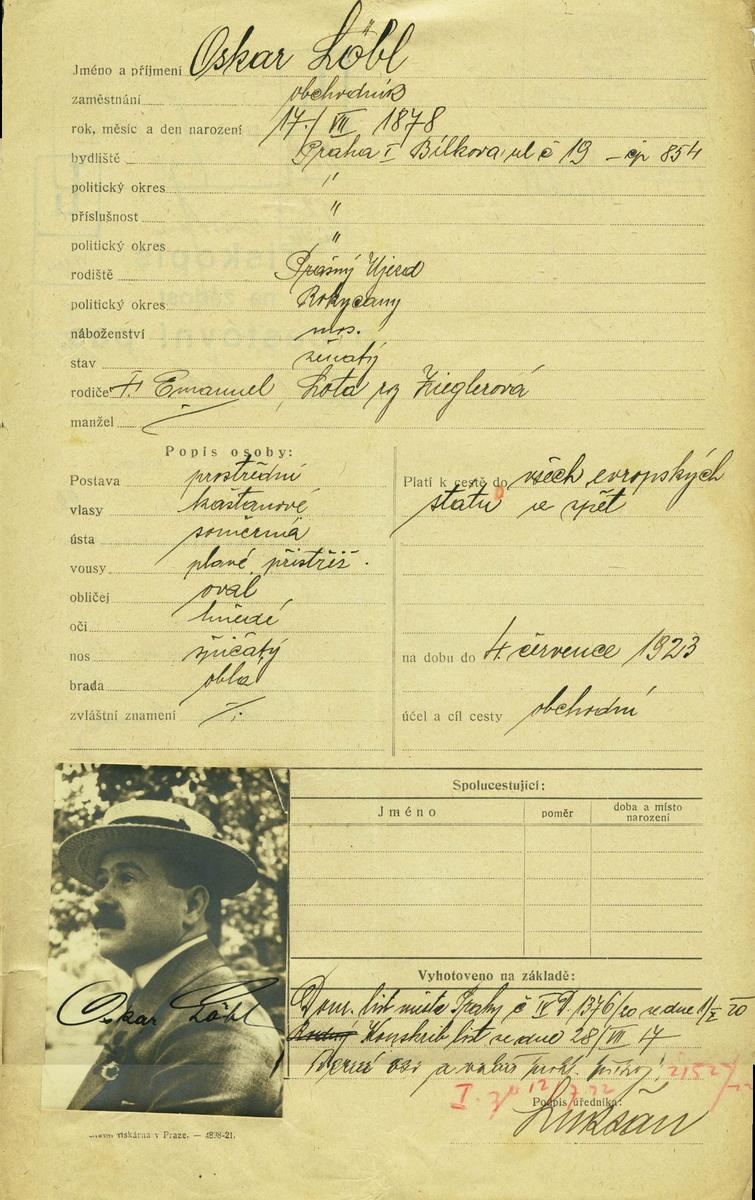 Jméno a příjmení Oskar Löbl
zaměstnání obchodník
rok, měsíc a den narození 17./VII 1878
bydliště Praha I Bílkova ul č 19 – čp 854
politický okres "
příslušnost "
politický okres "
rodiště Prašný Ujezd
politický okres Rokycany
náboženství mos.
stav ženatý
rodiče Emanuel, Lota roz Zieglerová
manžel
Popis osoby:
Postava prostřední
vlasy kaštanové
ústa souměrná
vousy plavé, přistřiž.
obličej oval
oči hnědé
nos špičatý
brada oblá
zvláštní znamení
Platí k cestě do všech evropských
statů a zpět
na dobu do 4. července 1923
účel a cíl cesty obchodní
Spolucestující:
Jméno poměr doba a místo narození
Vyhotoveno na základě:
Dom. list města Prahy č IV D. 1376/20 ze dne
Rodný Konskrib list ze dne 28/VII 17
Oskar Löbl
Podpis úředníka:
tiskárna v Praze. — 4898-21.